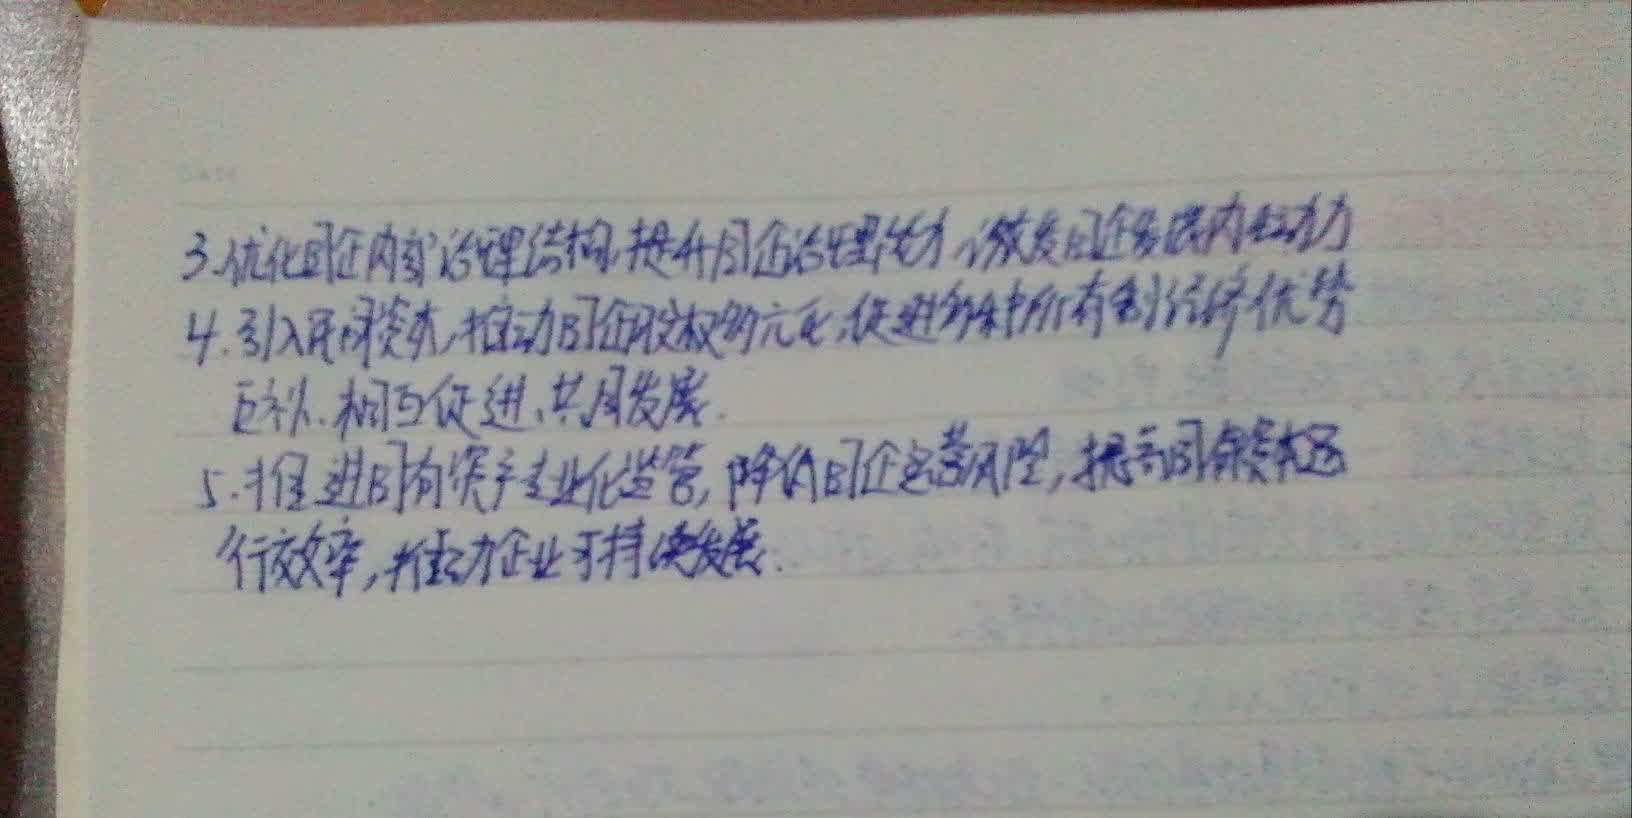 3.优化国企内部治理结构,提升国企治理能力,激发国企发展内生动力
4.引入民间资本,推动国企股权多元化,促进多种所有制经济优势
互补、相互促进、共同发展.
5.推进国有资产专业化监管,降低国企运营风险,提高国有资本运
行效率,推动企业可持续发展.